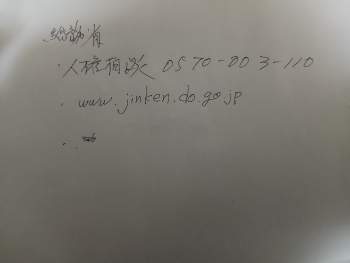 ・人権相談 0570-003-110
・www.jinken.do.go.jp